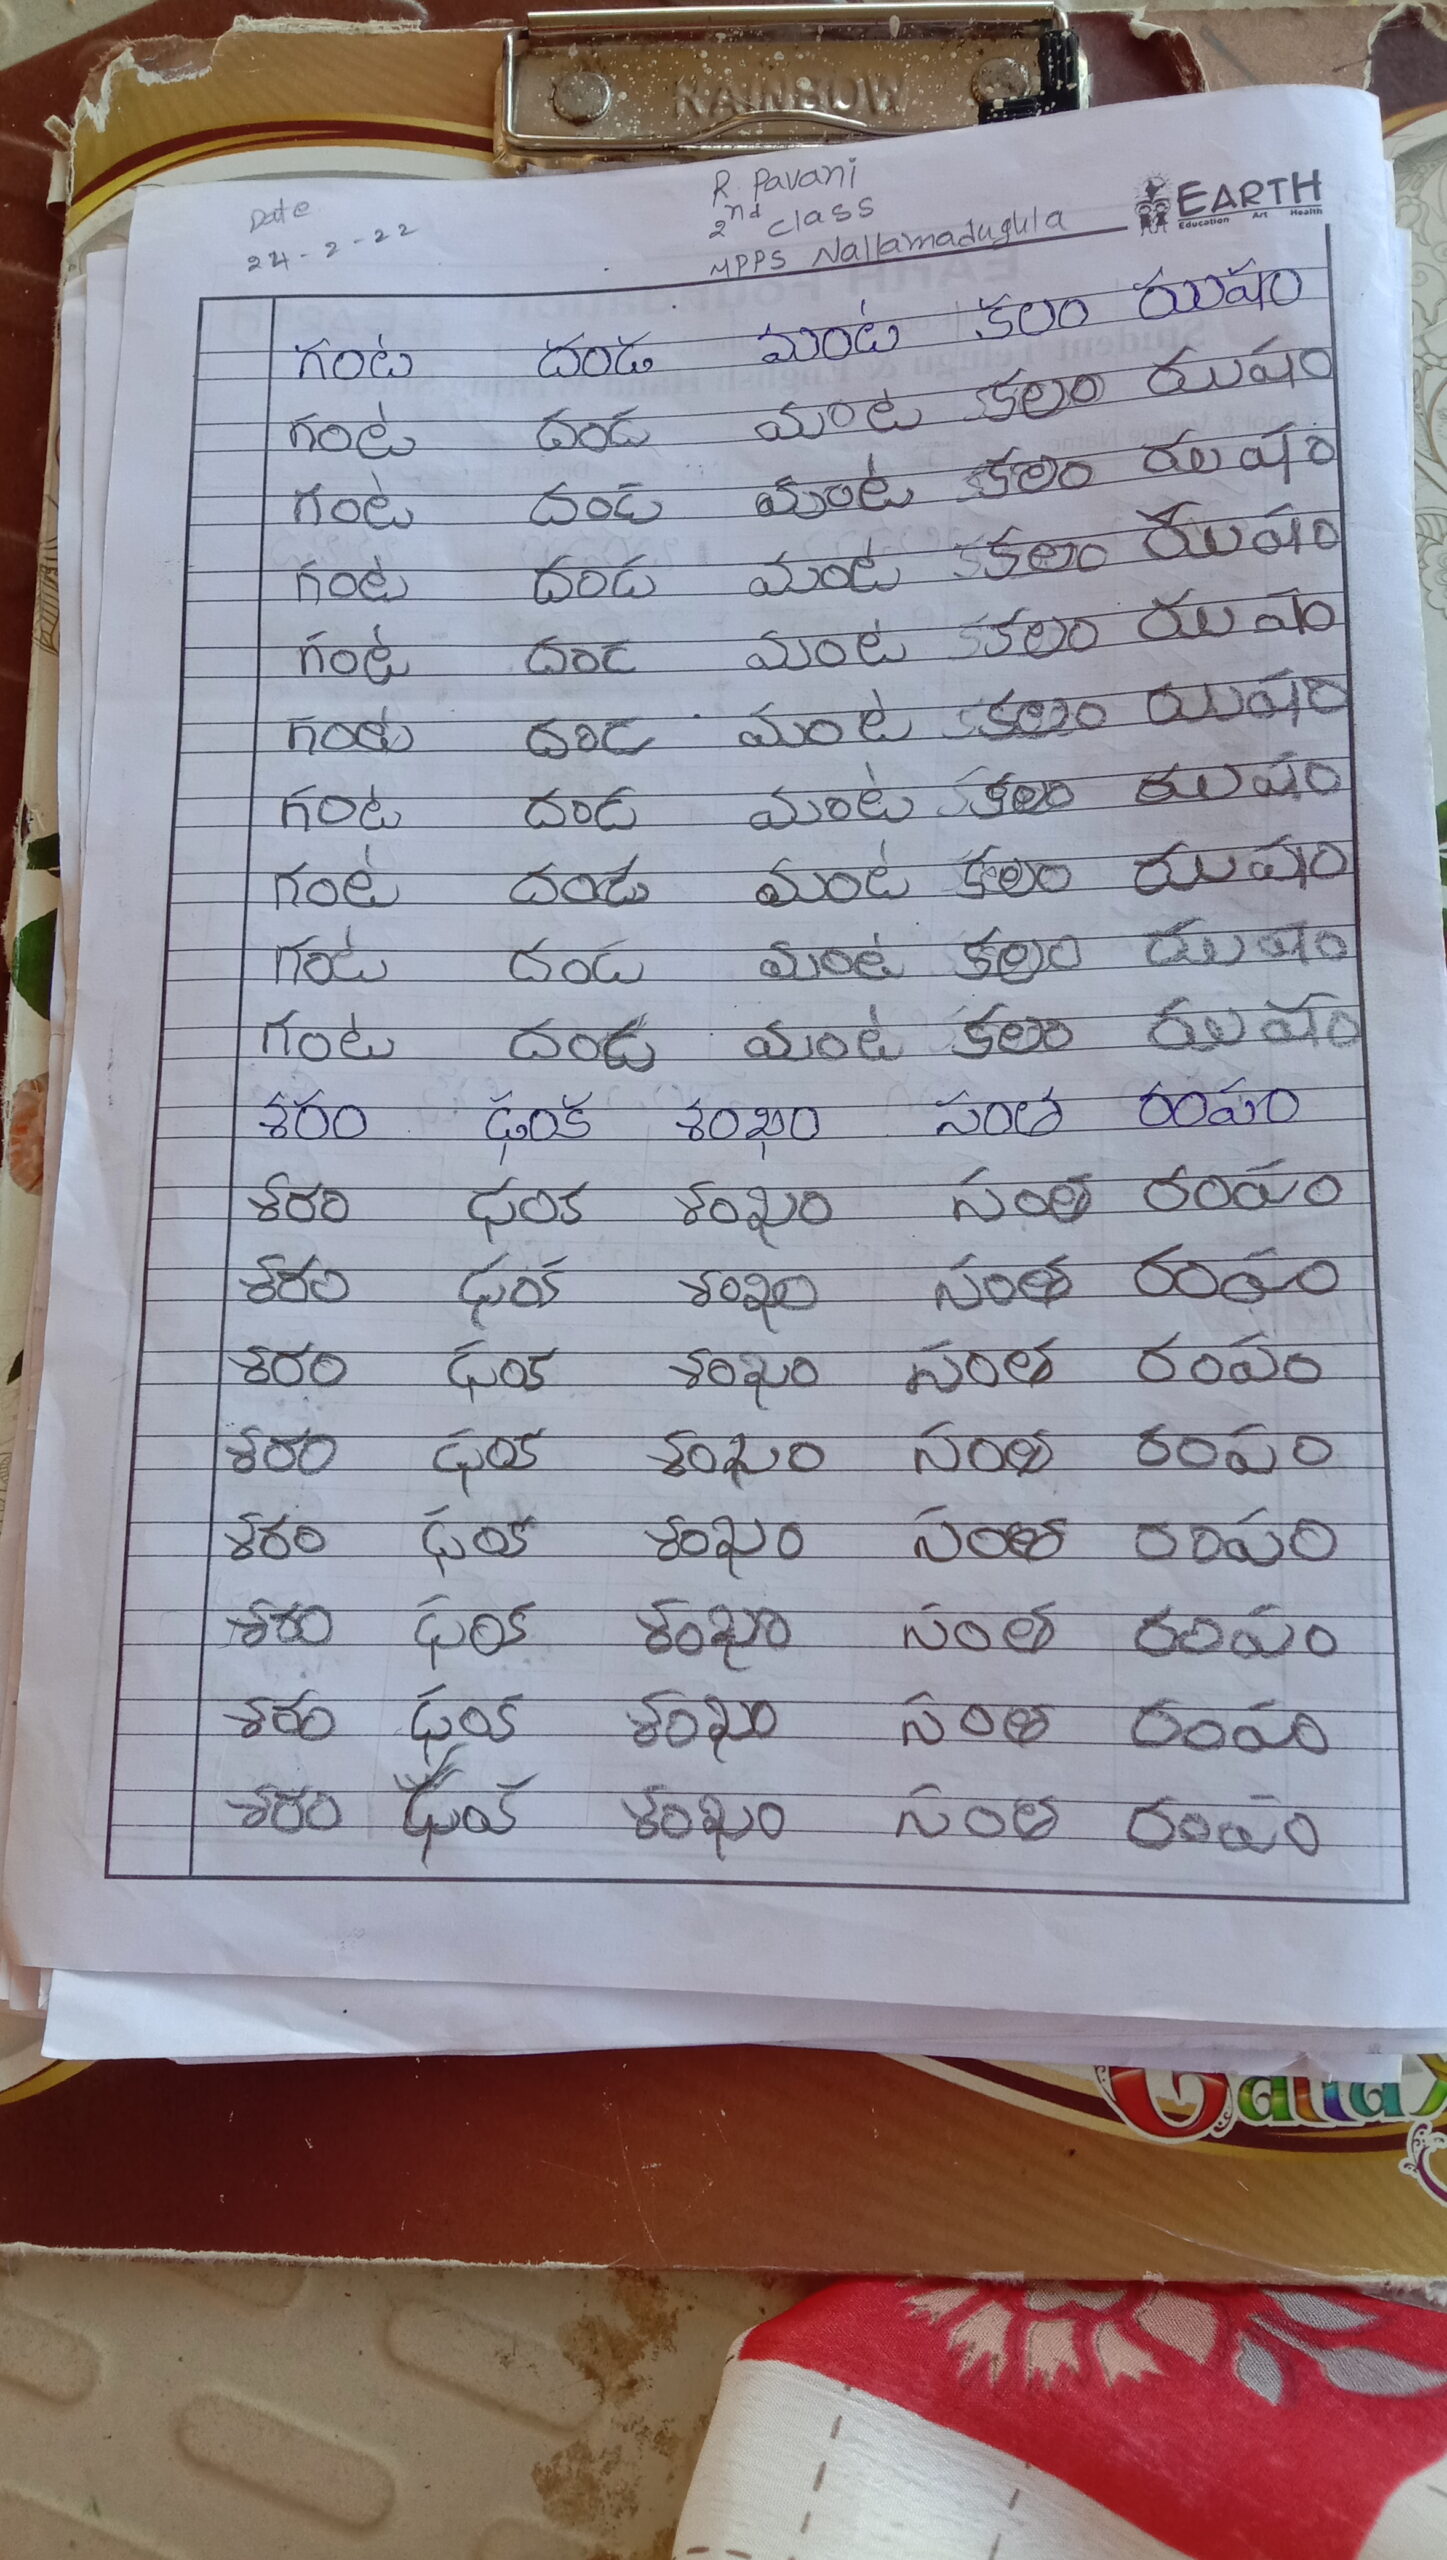 RAINBOW
Date
24-2-22
R Pavani
2nd class
MPPS Nallamadugula
EARTH
Education Art Health
గంట దండ మంట కలం ఝషం
గంట దండ మంట కలం ఝషం
గంట దండ మంట కలం ఝషం
గంట దండ మంట కలం ఝషం
గంట దండ మంట కలం ఝషం
గంట దండ మంట కలం ఝషం
గంట దండ మంట కలం ఝషం
గంట దండ మంట కలం ఝషం
గంట దండ మంట కలం ఝషం
గంట దండ మంట కలం ఝషం
శరం ఢంక శంఖం సంత రంపం
శరం ఢంక శంఖం సంత రంపం
శరం ఢంక శంఖం సంత రంపం
శరం ఢంక శంఖం సంత రంపం
శరం ఢంక శంఖం సంత రంపం
శరం ఢంక శంఖం సంత రంపం
శరం ఢంక శంఖం సంత రంపం
శరం ఢంక శంఖం సంత రంపం
శరం ఢంక శంఖం సంత రంపం